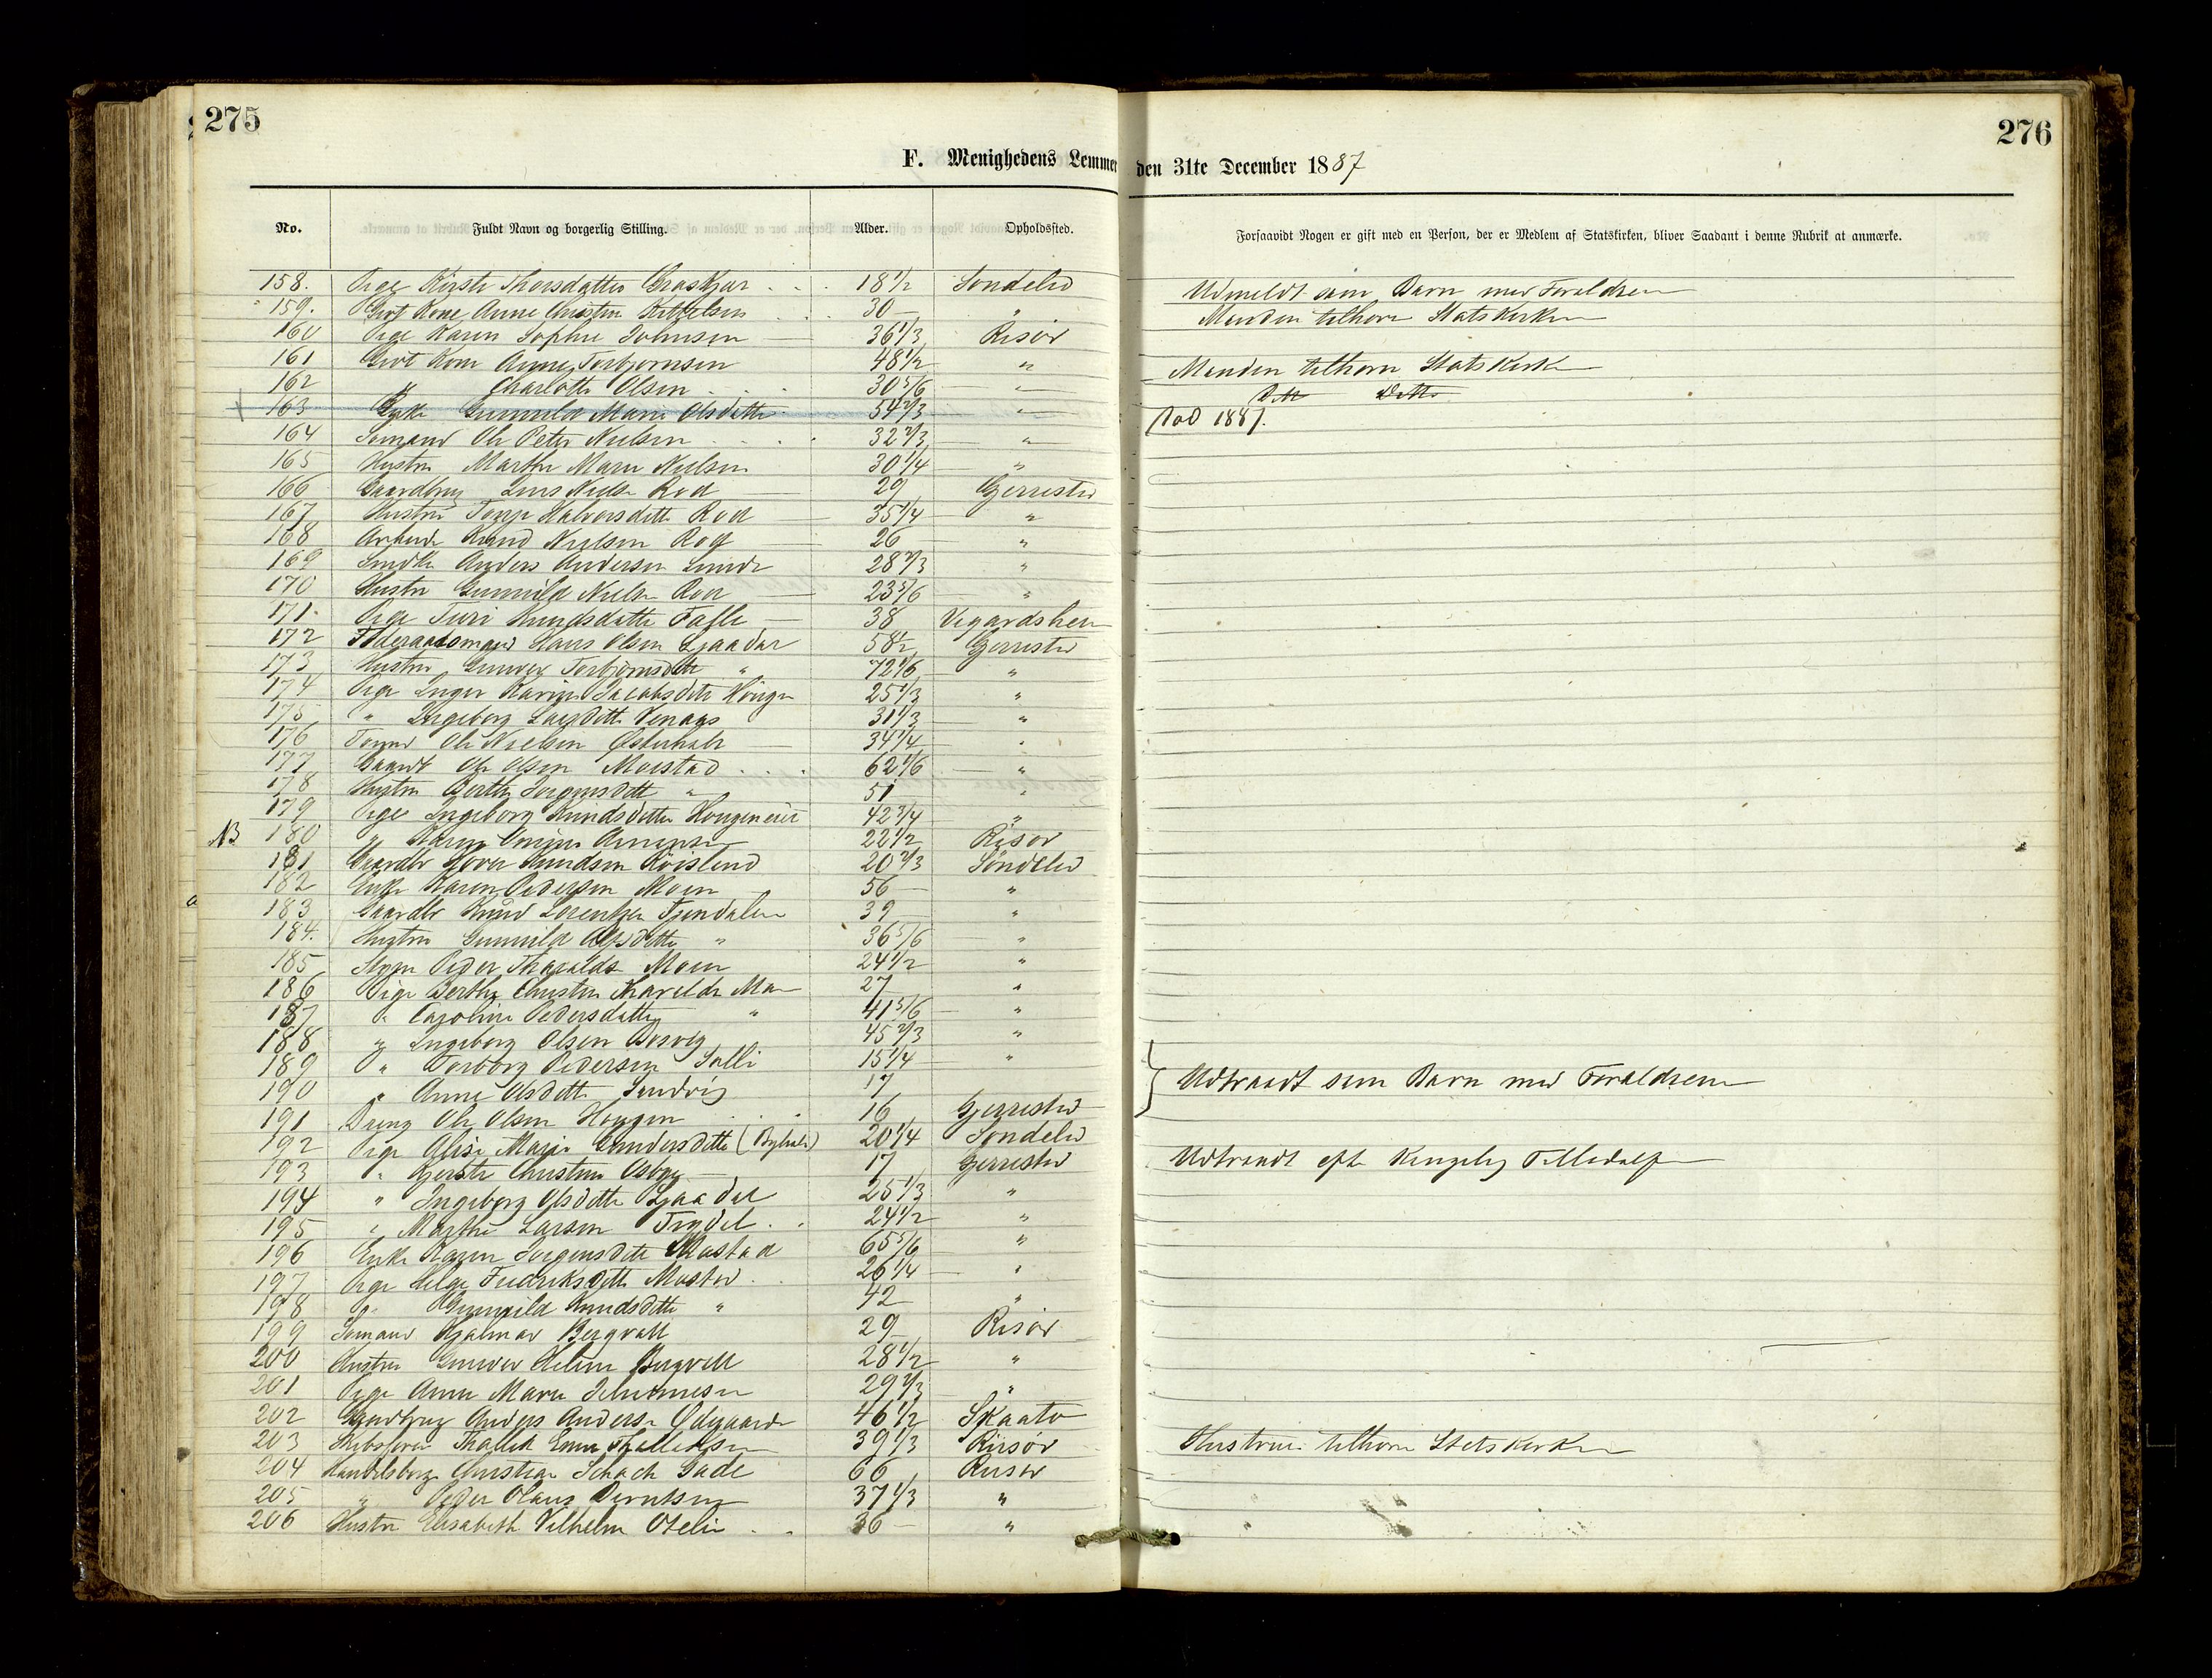 275
276
F. Menighedens Lemmer den 31te December 1887
No. Fuldt Navn og borgerlig Stilling. Alder. Opholdssted. Forsaavidt Nogen er gift med en Person, der er Medlem af Statskirken, bliver Saadant i denne Rubrik at anmærke.
158. Pige Kirste Thorsdatter 18 1/2 Søndeled Udmeldt som Barn med Foraldren
159. Gift Kone Anne Christine Kittelsen 30 " Manden tilhører Statskirken
160 Pige Karen Sophie Johnsen 36 1/3 Risør
161 Givt Kone Anne Torbjornsen 48 1/2 " Manden tilhorer Statskirk
162 " Charlotte Olsen 30 5/6 " Ditto Ditto
163 Enke Gunnild Marie Olsdatter 54 2/3 " Død 1887.
164 Sømand Ole Peter Nielsen 32 2/3 "
165 Hustru Marthe Marie Nielsen 30 1/4 "
166 Gaardbrug Lars Nielsen Rød 29 Gjerrestad
167 Hustru Halvorsdatter Rød 35 1/4 "
168 Arbeid Knud Nielsen Rød 26 "
169 Anders Andersen Lunde 28 2/3 "
170 Hustru Gunnild Nielsen Rød 23 5/6 "
171. Pige Turi Knudsdatter 38 Vegardsheien
172 Føderaadsmand Hans Olsen Ljaadal 58 1/2 Gjerrestad
173 Hustru Gunvor Torbjørnsdatter " 72 1/6 "
174 Pige Inger Karine Jacobsdatter 25 1/3 "
175 " Ingeborg Larsdatter Venaas 31 1/3 "
176 Ole Nielsen Østerholt 34 1/4 "
177 Gaard Ole Olsen Moestad 62 1/6 "
178 Hustru Berthe Jorgensdatter " 51 "
179 Pige Ingeborg Knudsdatter 42 3/4 "
NB 180 " Karen 22 1/2 Risør
181 Gaardbr Knudsen Røisland 20 2/3 Søndeled
182 Enke Karen Pedersen Moen 56 "
183 Gaardbr Knud Lorentzen 39 "
184. Hustru Gunnild " 36 5/6 "
185 Peder Tharalds Moen 24 1/2 "
186 Pige Berthe Christine Tharalds Moen 27 "
187 " Caroline Pedersdatter " 41 5/6 "
188 " Ingeborg Olsen 45 2/3 "
189 " Torborg Pedersen 15 1/4 "
190 " Anne Olsdatter Sandvig 17 Udtraadt som Barn med Foraldrene
191 Dreng Ole Olsen Haugen 16 Gjerrestad
192 Pige Marie Gundersdatter 20 1/4 Søndeled
193 " Kjerstie Christine 17 Gjerrestad Udtraadt efter Kongelig Tilladelse
194 " Ingeborg Olsdatter Ljaadal 25 1/3 "
195 " Marthe Larsen 24 1/2 "
196 Enke Karen Jorgensdatter Mostad 65 5/6 "
197 Pige Helge Fredriksdatter Mostad 26 1/4 "
198 " Gunnild Knudsdatter " 42 "
199 Sømand Hjalmar Bergvall 29 Risør
200 Hustru Gunvor Bergvall 28 1/2 "
201 Pige Anne Marie Johannesen 29 2/3 "
202 Gaardbrug Anders Andersen Ødegaarden 46 1/2 Skaatø
203 Skibsfører Thalleksen 39 1/3 Risør Hustruen tilhører Statskirken
204 Handelsborg Christian Schach Gade 66 Risør
205 " Peder Olaus Berntsen 37 1/3 "
206 Hustru Elisabeth Vilhelm 36 "